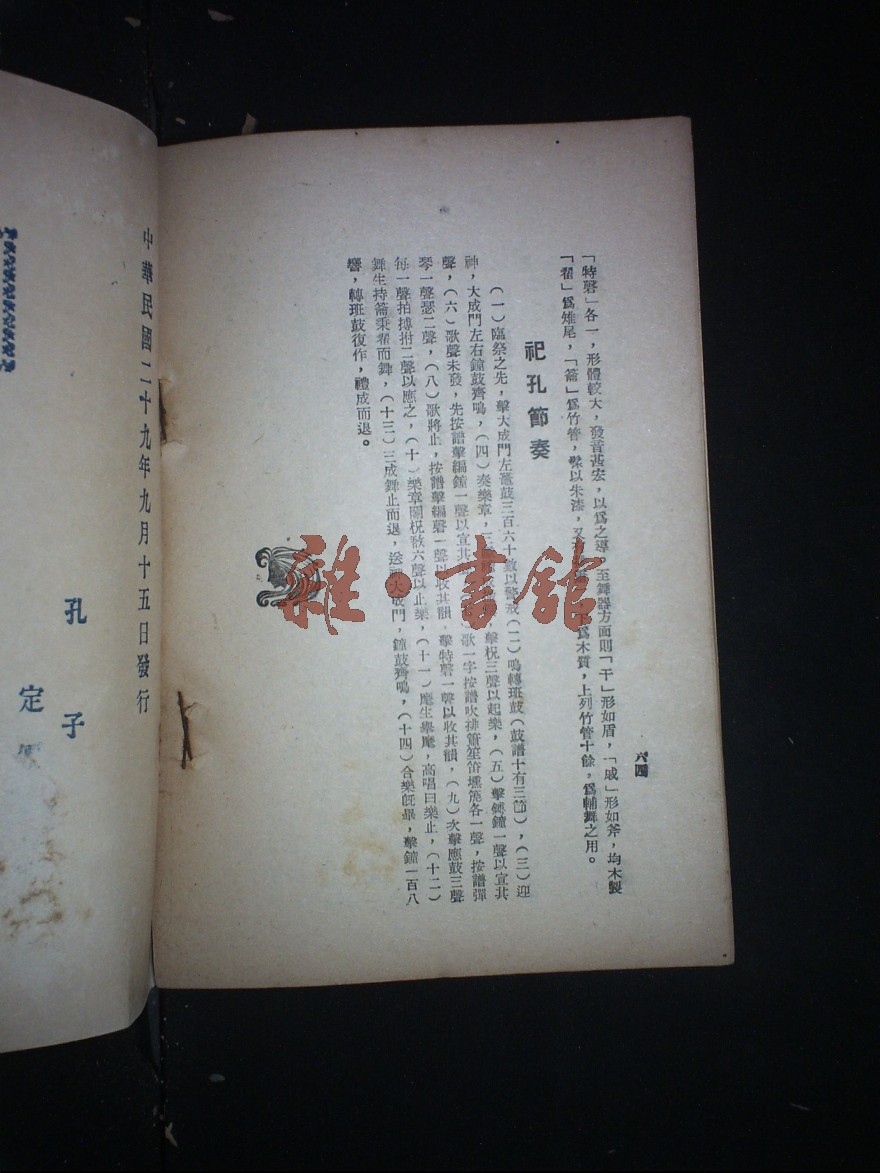 「特磬」各一，形體較大，發音甚宏，以爲之導。至舞器方面則「干」形如盾，「戚」形如斧，均木製
「翟」爲雉尾，「籥」爲竹管，髹以朱漆，又 下爲木質，上列竹管十餘，爲輔舞之用。
祀孔節奏
（一）臨祭之先，擊大成門左鼖鼓三百六十數以警戒（二）鳴轉班鼓（鼓譜十有三節），（三）迎
神，大成門左右鐘鼓齊鳴，（四）奏樂章， 擊柷三聲以起樂，（五）擊鎛鐘一聲以宣其
聲，（六）歌聲未發，先按譜擊編鐘一聲以宣其 歌一字按譜吹排簫笙笛壎箎各一聲，按譜彈
琴一聲瑟二聲，（八）歌將止，按譜擊編磬一聲以收其韻，擊特磬一聲以收其韻，（九）次擊應鼓三聲
每一聲拍搏拊二聲以應之，（十）樂章闋柷敔六聲以止樂，（十一）麾生舉麾，高唱曰樂止，（十二）
舞生持籥秉翟而舞，（十三）三成舞止而退，送神大成門，鐘鼓齊鳴，（十四）合樂旣畢，擊鐘一百八
響，轉班鼓復作，禮成而退。
六四
雜·書館
中華民國二十九年九月十五日發行
孔子
定